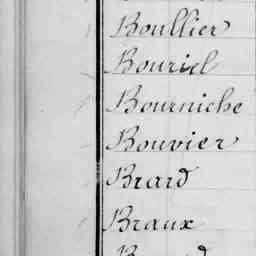 Boullier
Bouriel
Bourniche
Bouvier
Brard
Braux